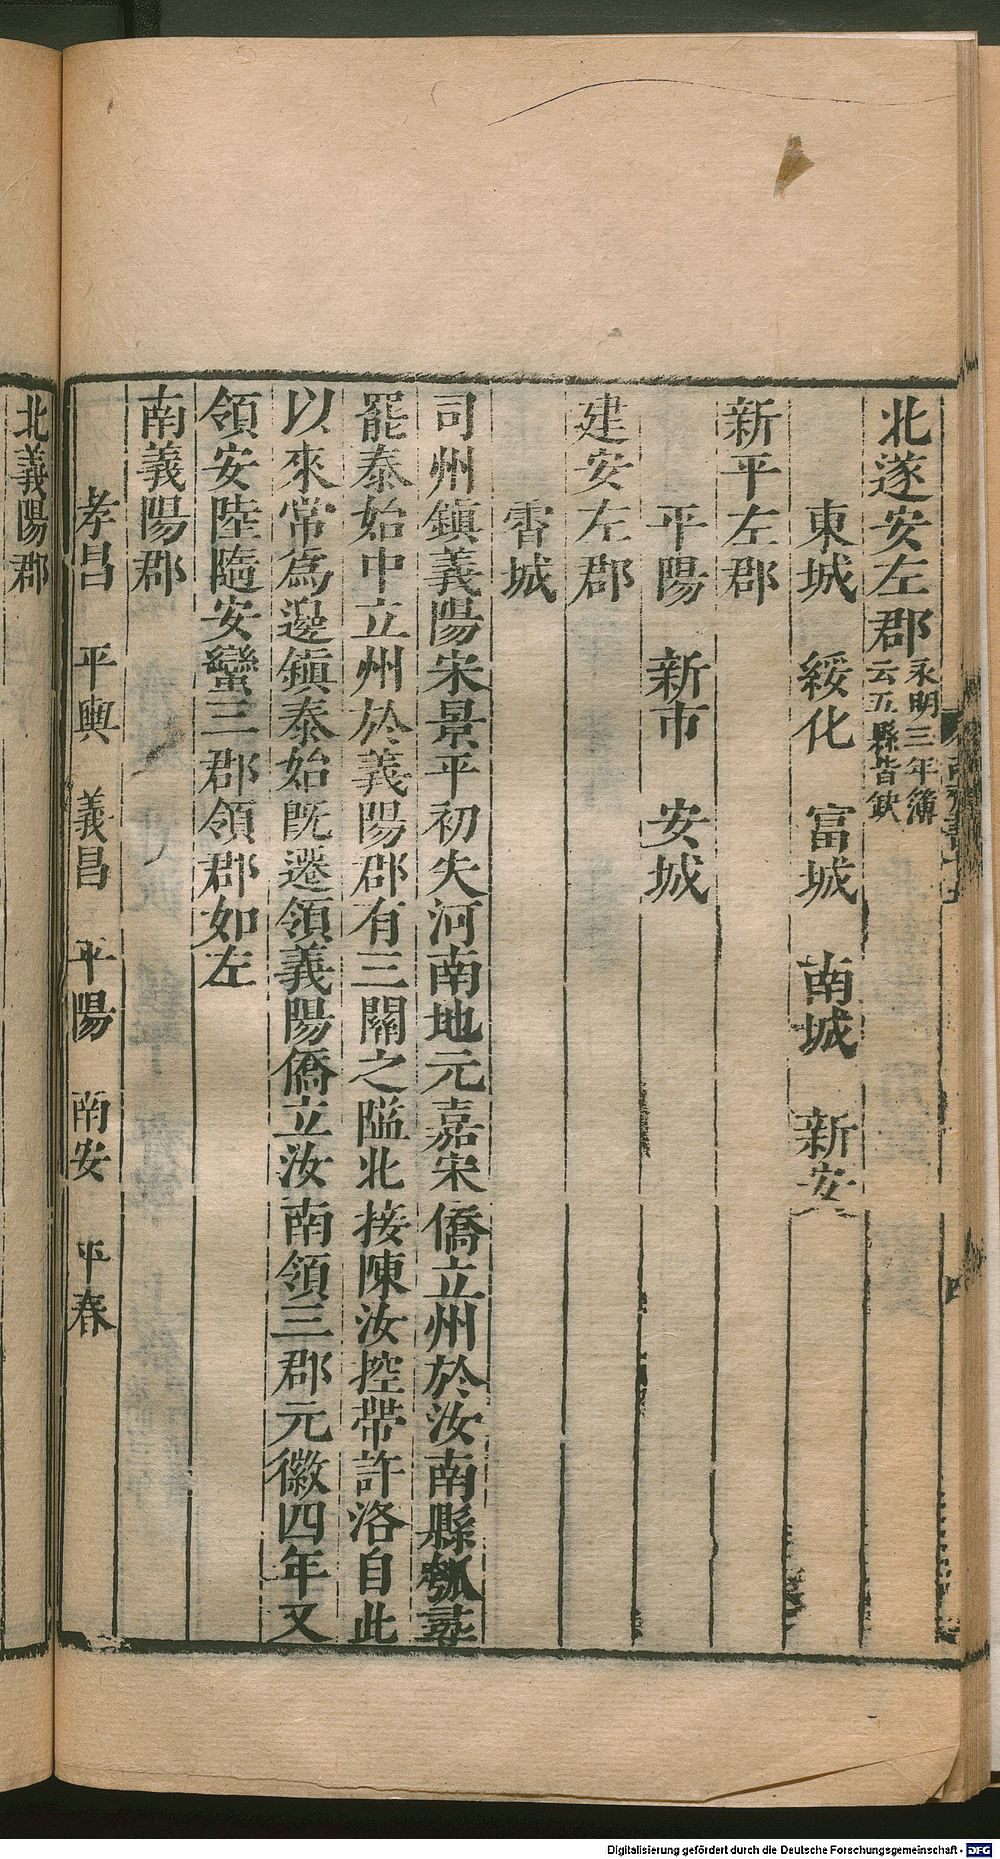 北遂安左郡永明三年簿云五縣皆缺
東城　綏化　富城　南城　新安
新平左郡
平陽　新市　安城
建安左郡
霄城
司州鎮義陽宋景平初失河南地元嘉宋僑立州於汝南縣瓠尋
罷泰始中立州於義陽郡有三關之隘北接陳汝控帶許洛自此
以來常為邊鎮泰始旣遷領義陽僑立汝南領三郡元徽四年又
領安陸隨安蠻三郡領郡如左
南義陽郡
孝昌　平輿　義昌　平陽　南安　平春
北義陽郡
Digitalisierung gefördert durch die Deutsche Forschungsgemeinschaft - DFG